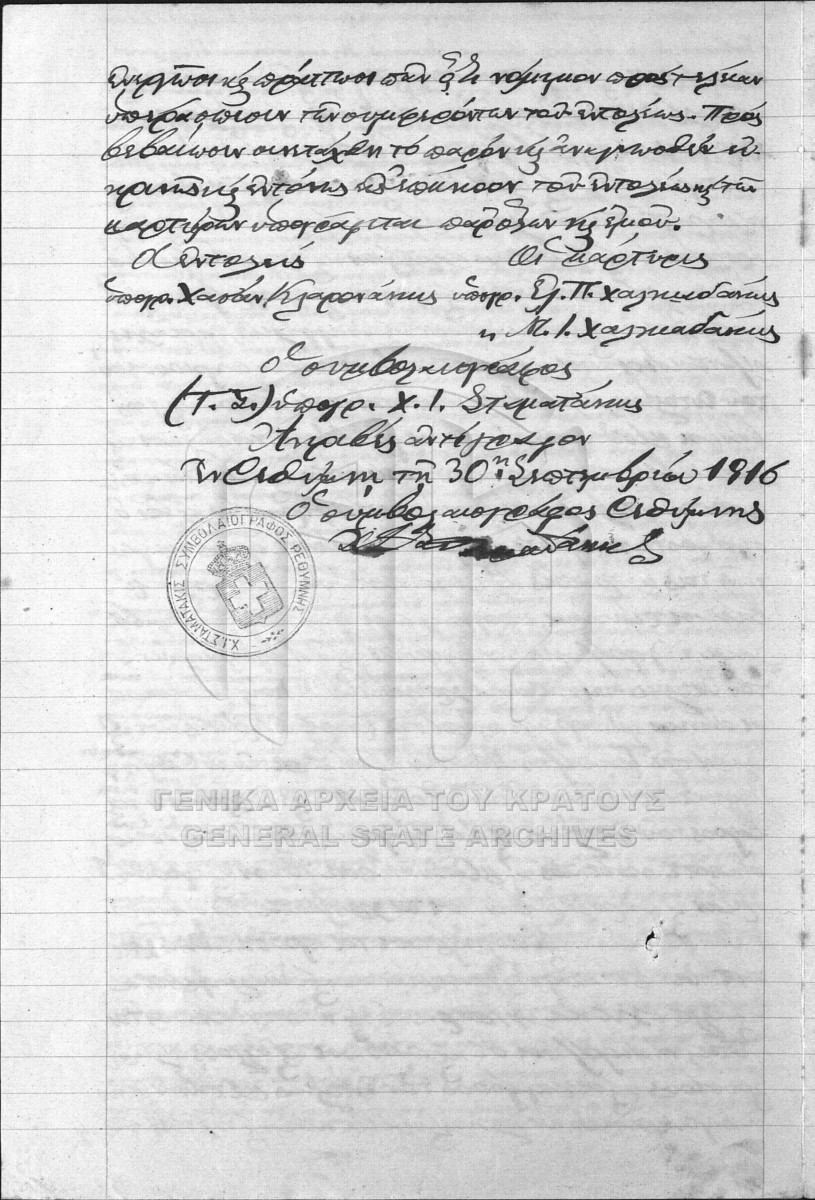 ἐνεργῶσι κ̀ πράττωσι πᾶν ὅ,τι νόμιμον πρὸς τελείαν
ὑπεράσπισιν τῶν συμφερόντων τοῦ ἐντολέως. Πρὸς
βεβαίωσιν συνετάχθη τὸ παρὸν κ̀ ἀναγνωσθὲν εὐ-
κρινῶς κ̀ ἐντόνως εἰς ἐπήκοον τοῦ ἐντολέως κ̀ τῶν
μαρτύρων ὑπογράφεται παρ' ὅλων κ̀ ἐμοῦ.
Ὁ ἐντολεύς Οἱ μάρτυρες
ὑπογρ. Χασὰν Κλαρονάκις ὑπογρ. Ἐλ. Π. Χαλκιαδάκις
" Μ. Ι. Χαλκιαδάκις
Ὁ συμβολαιογράφος
(Τ.Σ.) ὑπογρ. Χ. Ι. Σταματάκις
Ἀκριβὲς ἀντίγραφον
Ἐν Ρεθύμνῃ τῇ 30ῇ Σεπτεμβρίου 1916
Ὁ συμβολαιογράφος Ρεθύμνης
Χ.Ι. ΣΤΑΜΑΤΑΚΙΣ ΣΥΜΒΟΛΑΙΟΓΡΑΦΟΣ ΡΕΘΥΜΝΗΣ
ΓΕΝΙΚΑ ΑΡΧΕΙΑ ΤΟΥ ΚΡΑΤΟΥΣ
GENERAL STATE ARCHIVES